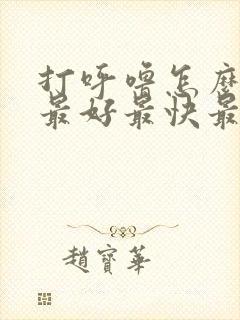 打呼噜怎麽
最好最快最
趙寶華